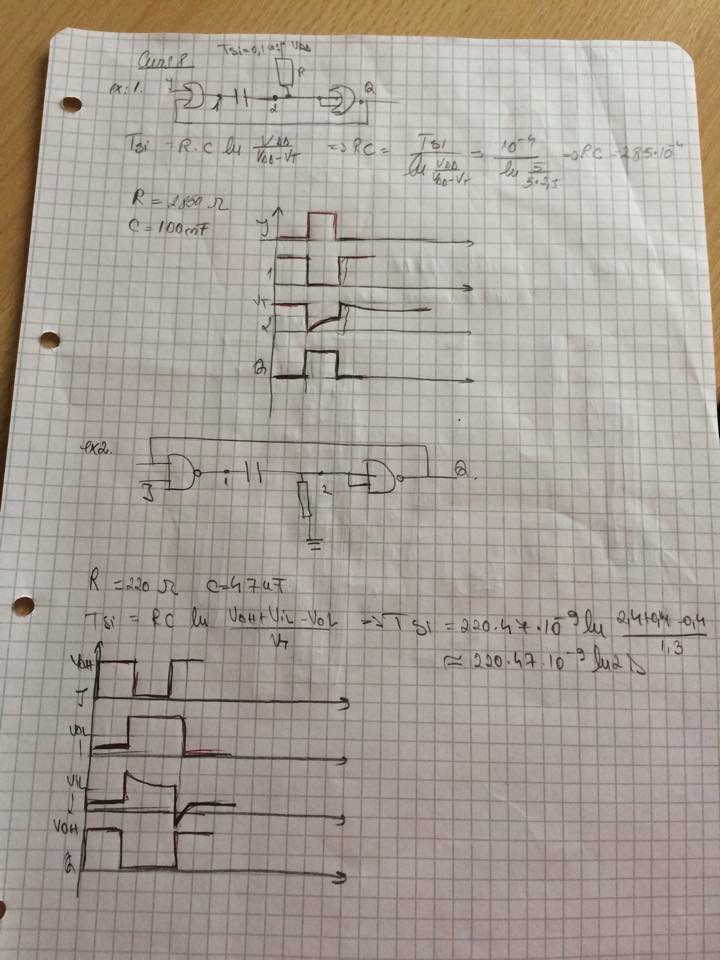 Curs 8
Tsi=0,1 VDD
R
ex: 1.
J
1
2
Q
Tsi = R·C ln VDD/(VDD-VT) => RC = Tsi/(ln VDD/(VDD-VT)) = 10^-4/(ln 5/(5-2,5)) => RC = 285·10^-4
R = 2850 Ω
C = 100mF
J
1
VT
2
Q
ex2.
J
1
2
Q.
R = 220 Ω C=47nF
Tsi = RC ln (VOH+VIL-VOL)/VT => Tsi = 220·47·10^-9 ln (2,4+0,4-0,4)/1,3
≈ 220·47·10^-9 ln2 s
VOH
J
VOL
1
VIL
2
VOH
Q